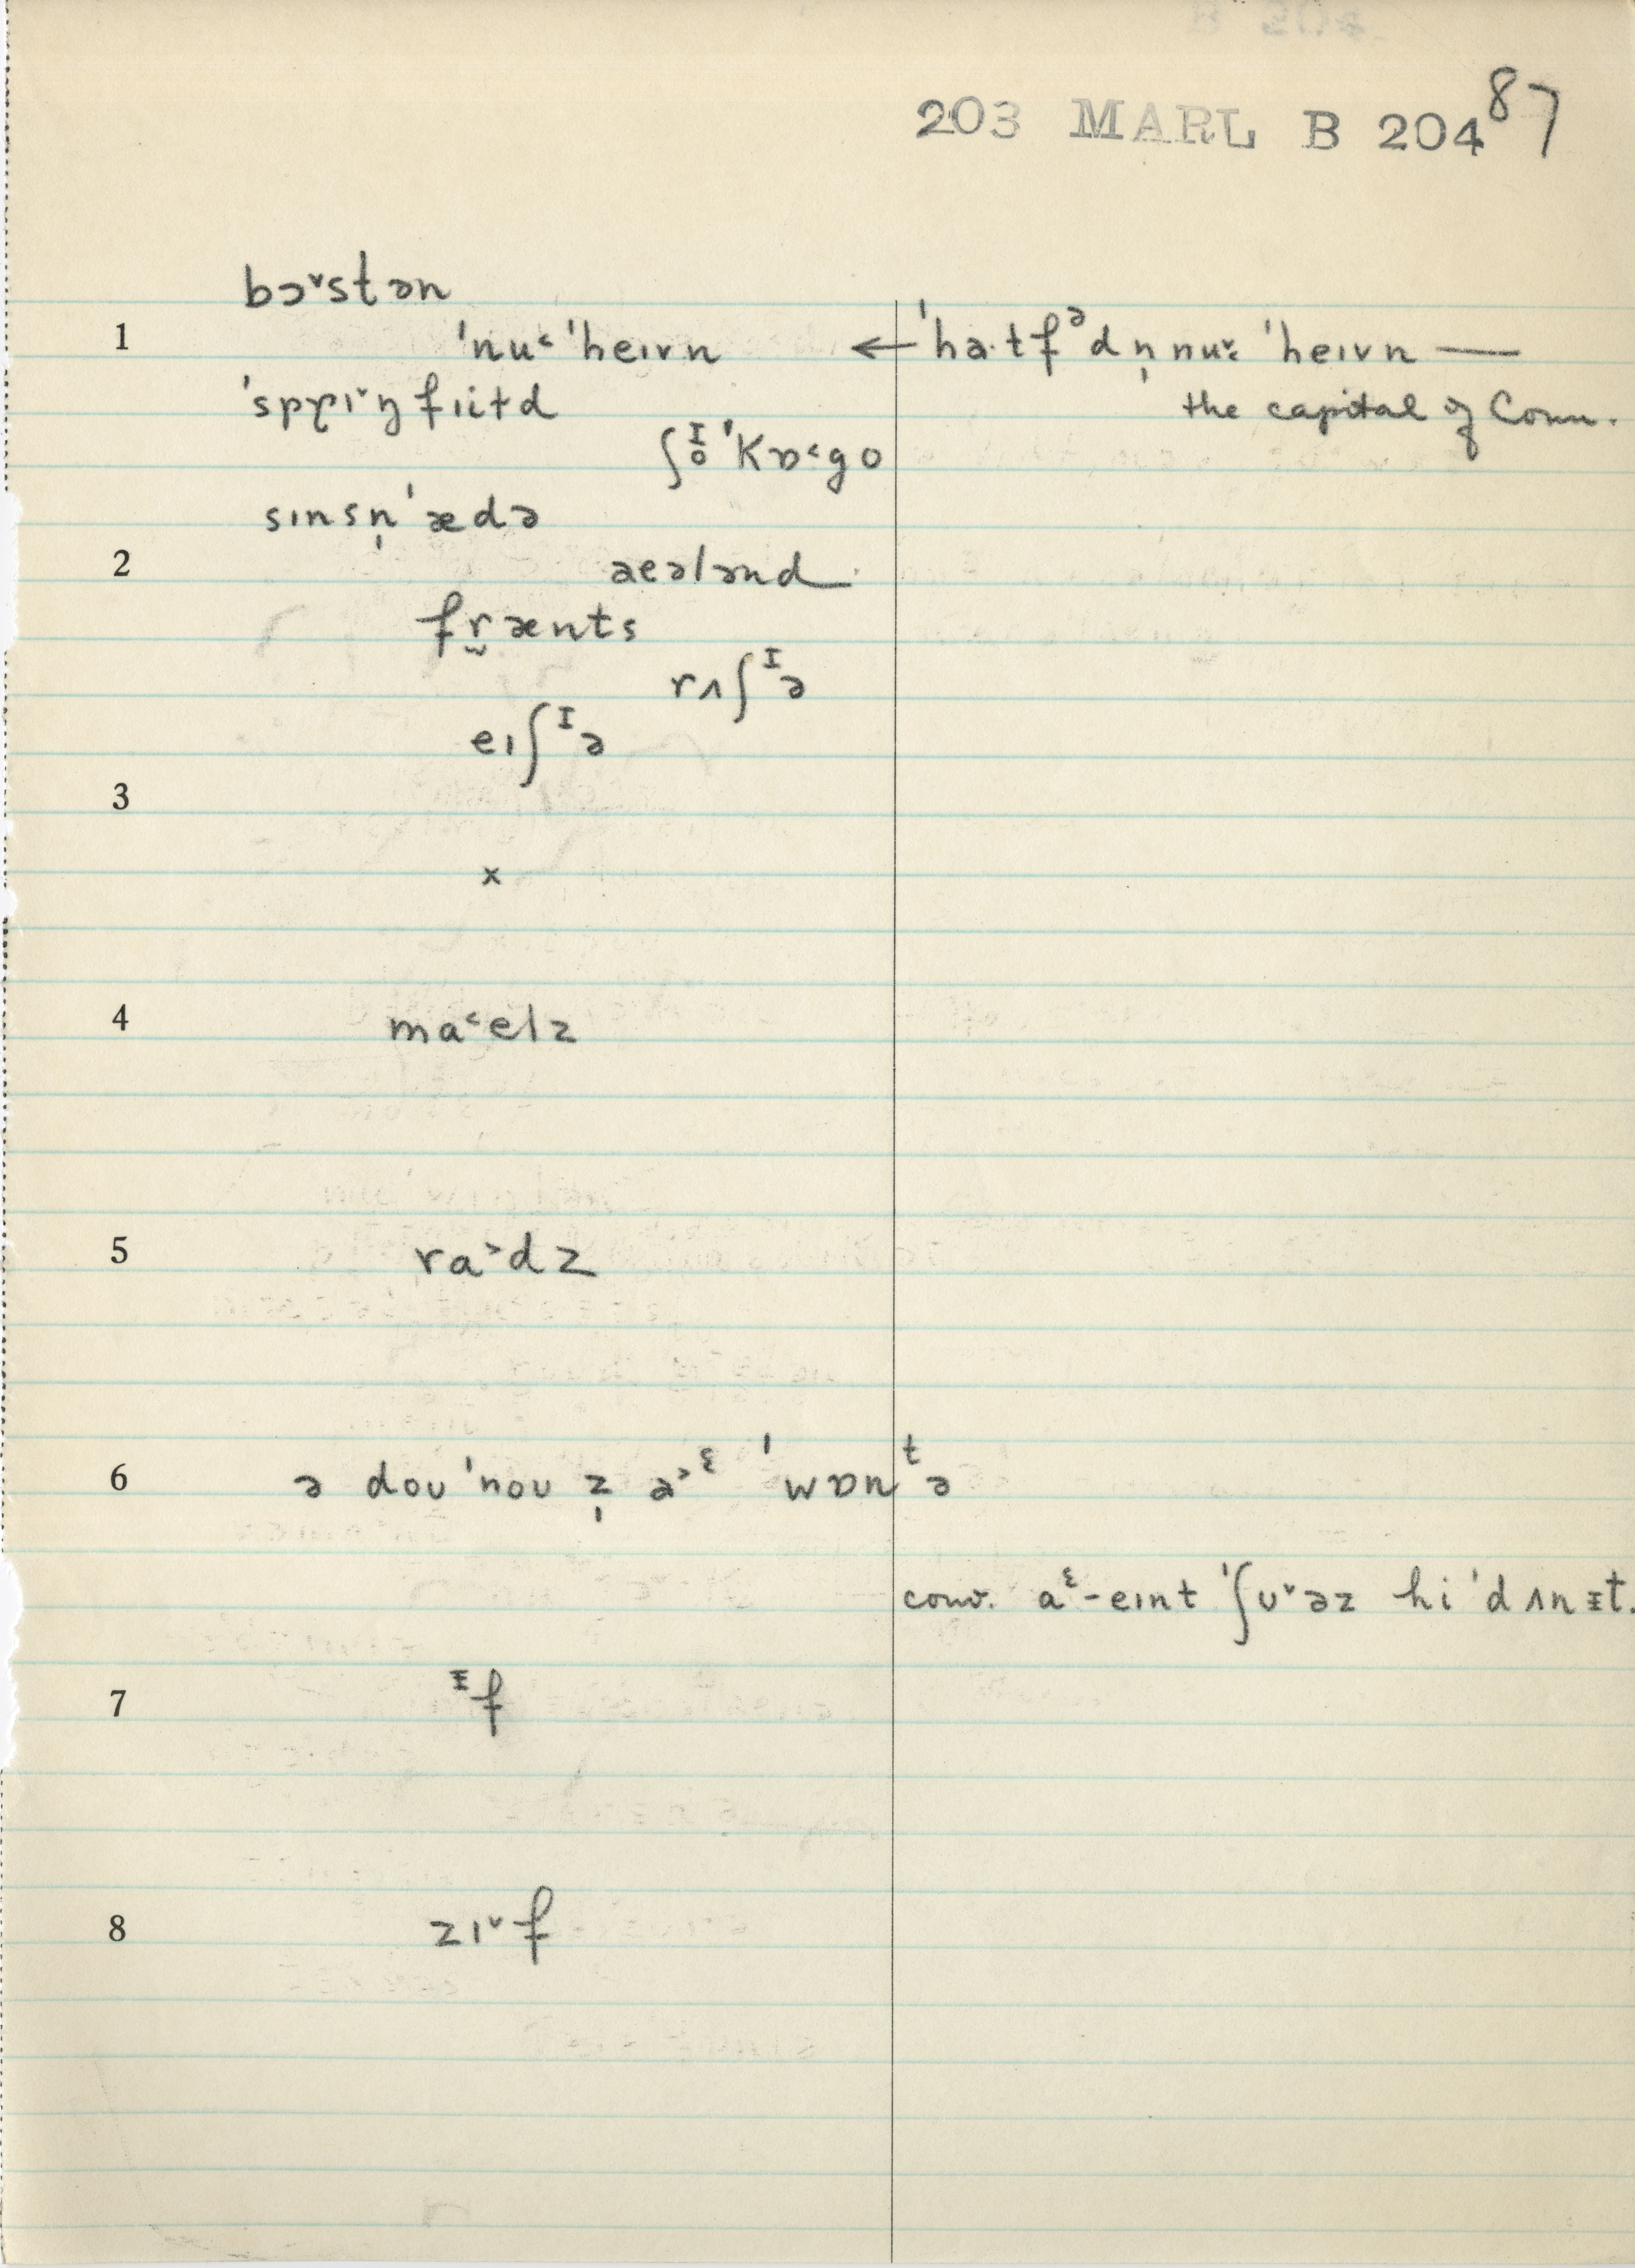 203 MARL B 204 87
bɔ˅stən
1 ˈnu˂ ˈheɪvn ← ˈha·tfᵊdn̩nu˅: ˈheɪvn —
ˈsprɪ˅ŋfɪiɫd the capital of Conn.
ʃᴵₒˈkɒ˂go
sɪnsn̩ˈædə
2 aeələnd
frænts
rʌʃᴵə
eɪʃᴵə
3
x
4 ma˂elz
5 ra˃dz
6 ə doʊ ˈnoʊ z̩ a˃ᵋ ˈwɒnᵗə
conv. aᵋ-eɪnt ˈʃʊ˅əz hi ˈdʌnɪt.
7 ᵻf
8 zɪ˅f